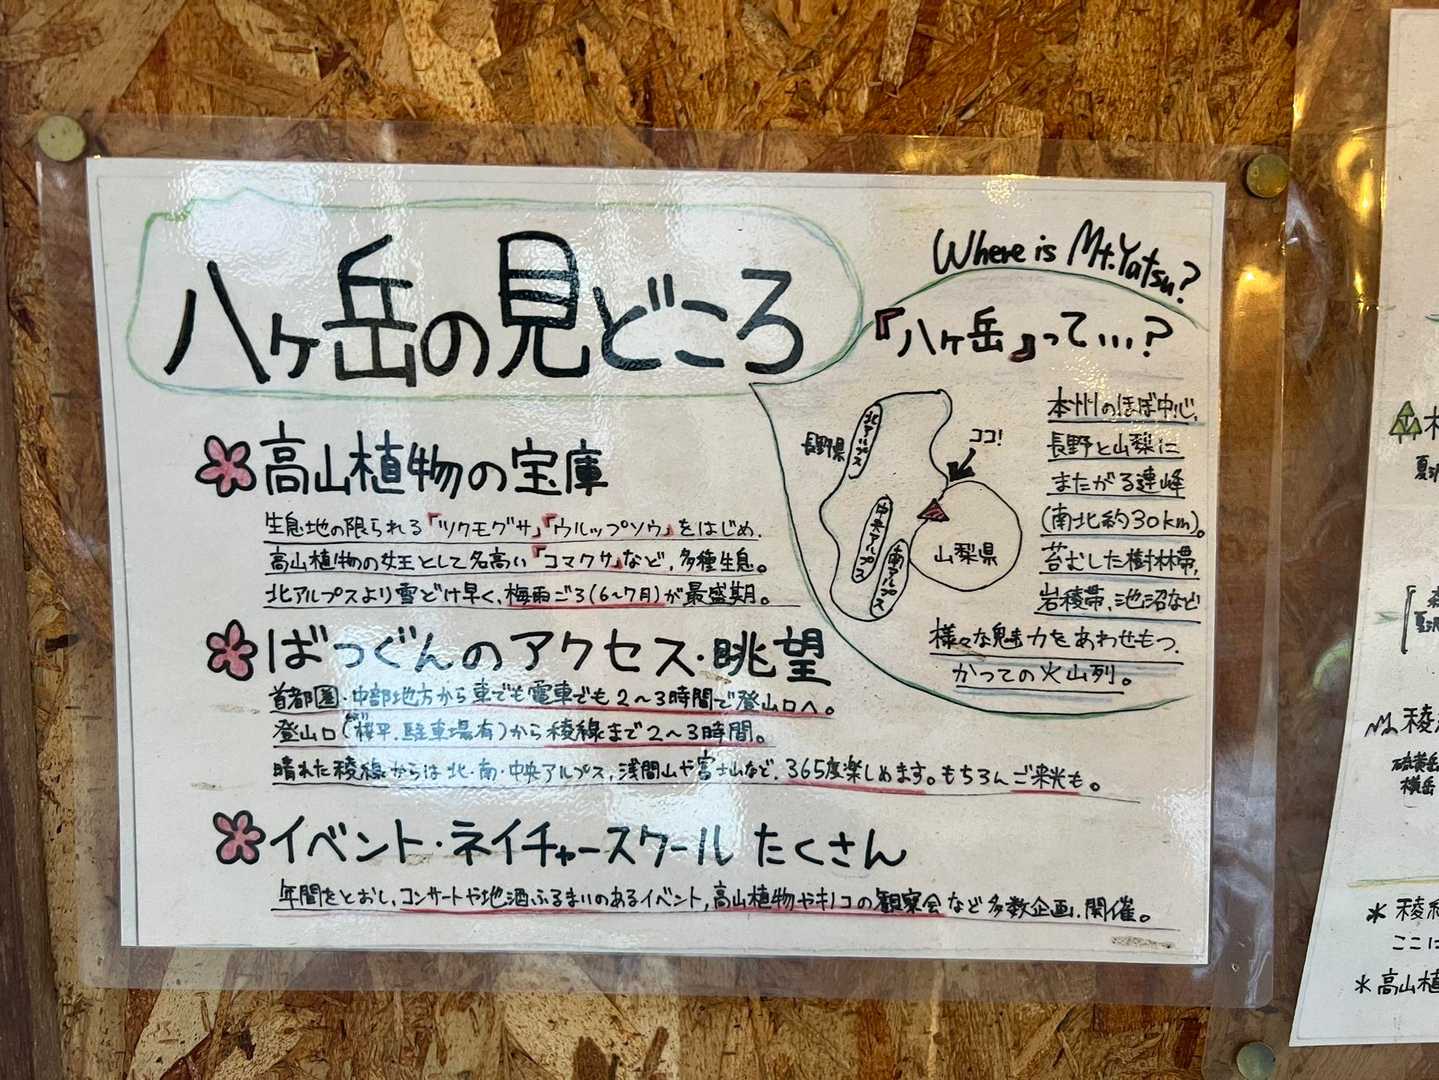 八ヶ岳の見どころ
高山植物の宝庫
生息地の限られる「ツクモグサ」「ウルップソウ」をはじめ、
高山植物の女王として名高い「コマクサ」など、多種生息。
北アルプスより雪どけ早く、梅雨ごろ(6〜7月)が最盛期。
ばつぐんのアクセス・眺望
首都圏・中部地方から車でも電車でも2〜3時間で登山口へ。
登山口(桜平、駐車場有)から稜線まで2〜3時間。
晴れた稜線からは北・南・中央アルプス、浅間山や富士山など、365度楽しめます。もちろんご来光も。
イベント・ネイチャースクール たくさん
年間をとおし、コンサートや地酒ふるまいのあるイベント、高山植物やキノコの観察会など多数企画、開催。
Where is Mt.Yatsu?
『八ヶ岳』って...?
長野県
北アルプス
中央アルプス
南アルプス
ココ!
山梨県
本州のほぼ中心、
長野と山梨に
またがる連峰
(南北約30km)。
苔むした樹林帯、
岩稜帯、池沼など
様々な魅力をあわせもつ、
かつての火山列。
稜
硫黄岳
横岳
＊稜
ここに
＊高山植